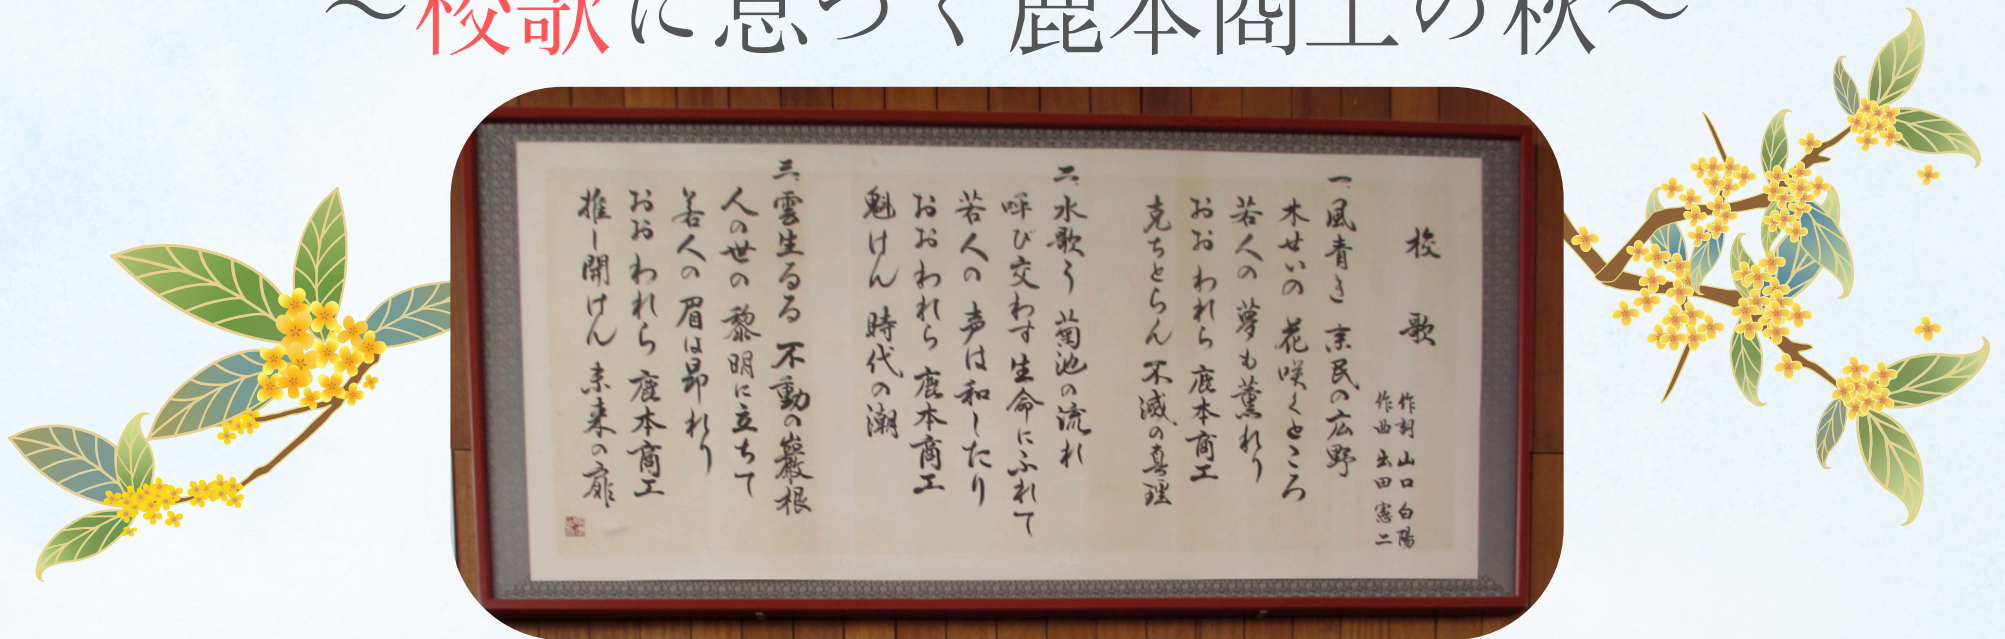 ～校歌に息づく鹿本商工の秋～
校歌
作詞 山口白陽
作曲 出田憲二
一、風青き 余民の広野
木せいの 花咲くところ
若人の 夢も薫れり
おお われら 鹿本商工
克ちとらん 不滅の真理
二、水歌う 菊池の流れ
呼び交わす 生命にふれて
若人の 声は和したり
おお われら 鹿本商工
魁けん 時代の潮
三、雲生るる 不動の巌根
人の世の 黎明に立ちて
若人の 眉は昂れり
おお われら 鹿本商工
推し開けん 未来の扉